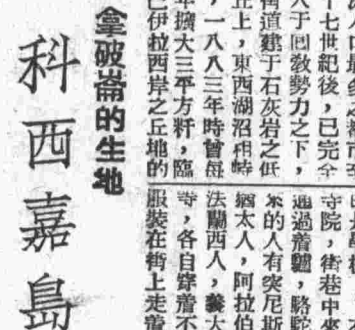 人口最多
十七世紀後，已完全
入于回敎勢力之下，
街道建于石灰岩之低
丘上，東西湖沼相峙
，一八八三年時曾每
年擴大三平方粁，臨
巴伊拉西岸之丘地的
寺院，街巷中來
通過着驢，駱駝
的人有突尼斯
猶太人，阿拉伯
法蘭西人，義大
等，各自穿着不
服裝在街上走着
拿破崙的生地
科西嘉島